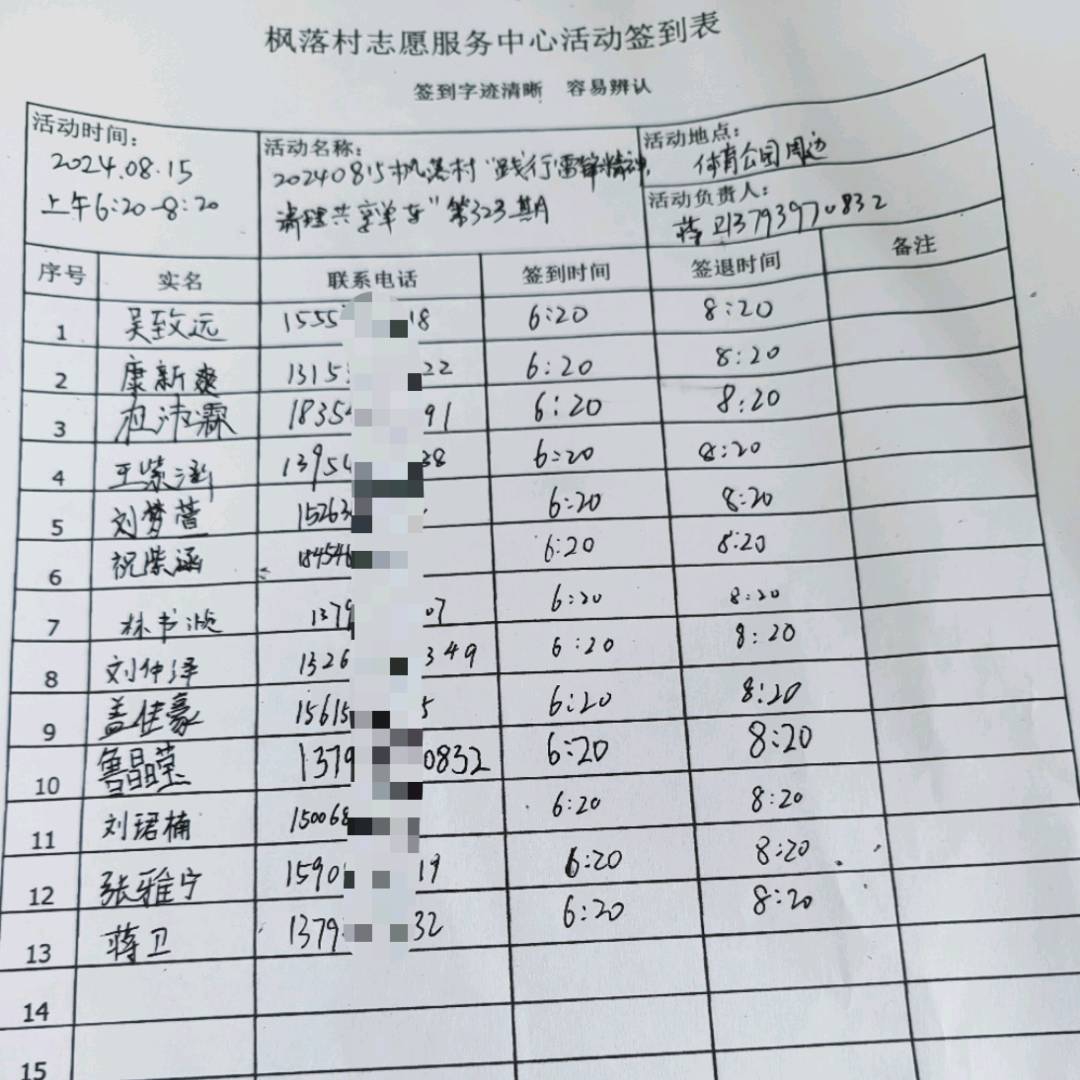 枫落村志愿服务中心活动签到表
签到字迹清晰 容易辨认
活动时间:
2024.08.15
上午6:20-8:20
活动名称:
20240815枫落村“践行雷锋精神,
清理共享单车”第323期
活动地点:
体育公园周边
活动负责人:
蒋卫13793970832
序号 实名 联系电话 签到时间 签退时间 备注
1 吴致远 1555 18 6:20 8:20
2 康新爽 1315 22 6:20 8:20
3 杜沛霖 1835 91 6:20 8:20
4 王紫涵 1395 38 6:20 8:20
5 刘梦萱 15263 6:20 8:20
6 祝紫涵 18454 6:20 8:20
7 林书 1379 07 6:20 8:20
8 刘仲泽 1326 349 6:20 8:20
9 盖佳豪 15615 5 6:20 8:20
10 鲁晶莹 1379 0832 6:20 8:20
11 刘珺楠 15006 6:20 8:20
12 张雅宁 1590 19 6:20 8:20
13 蒋卫 1379 32 6:20 8:20
14
15